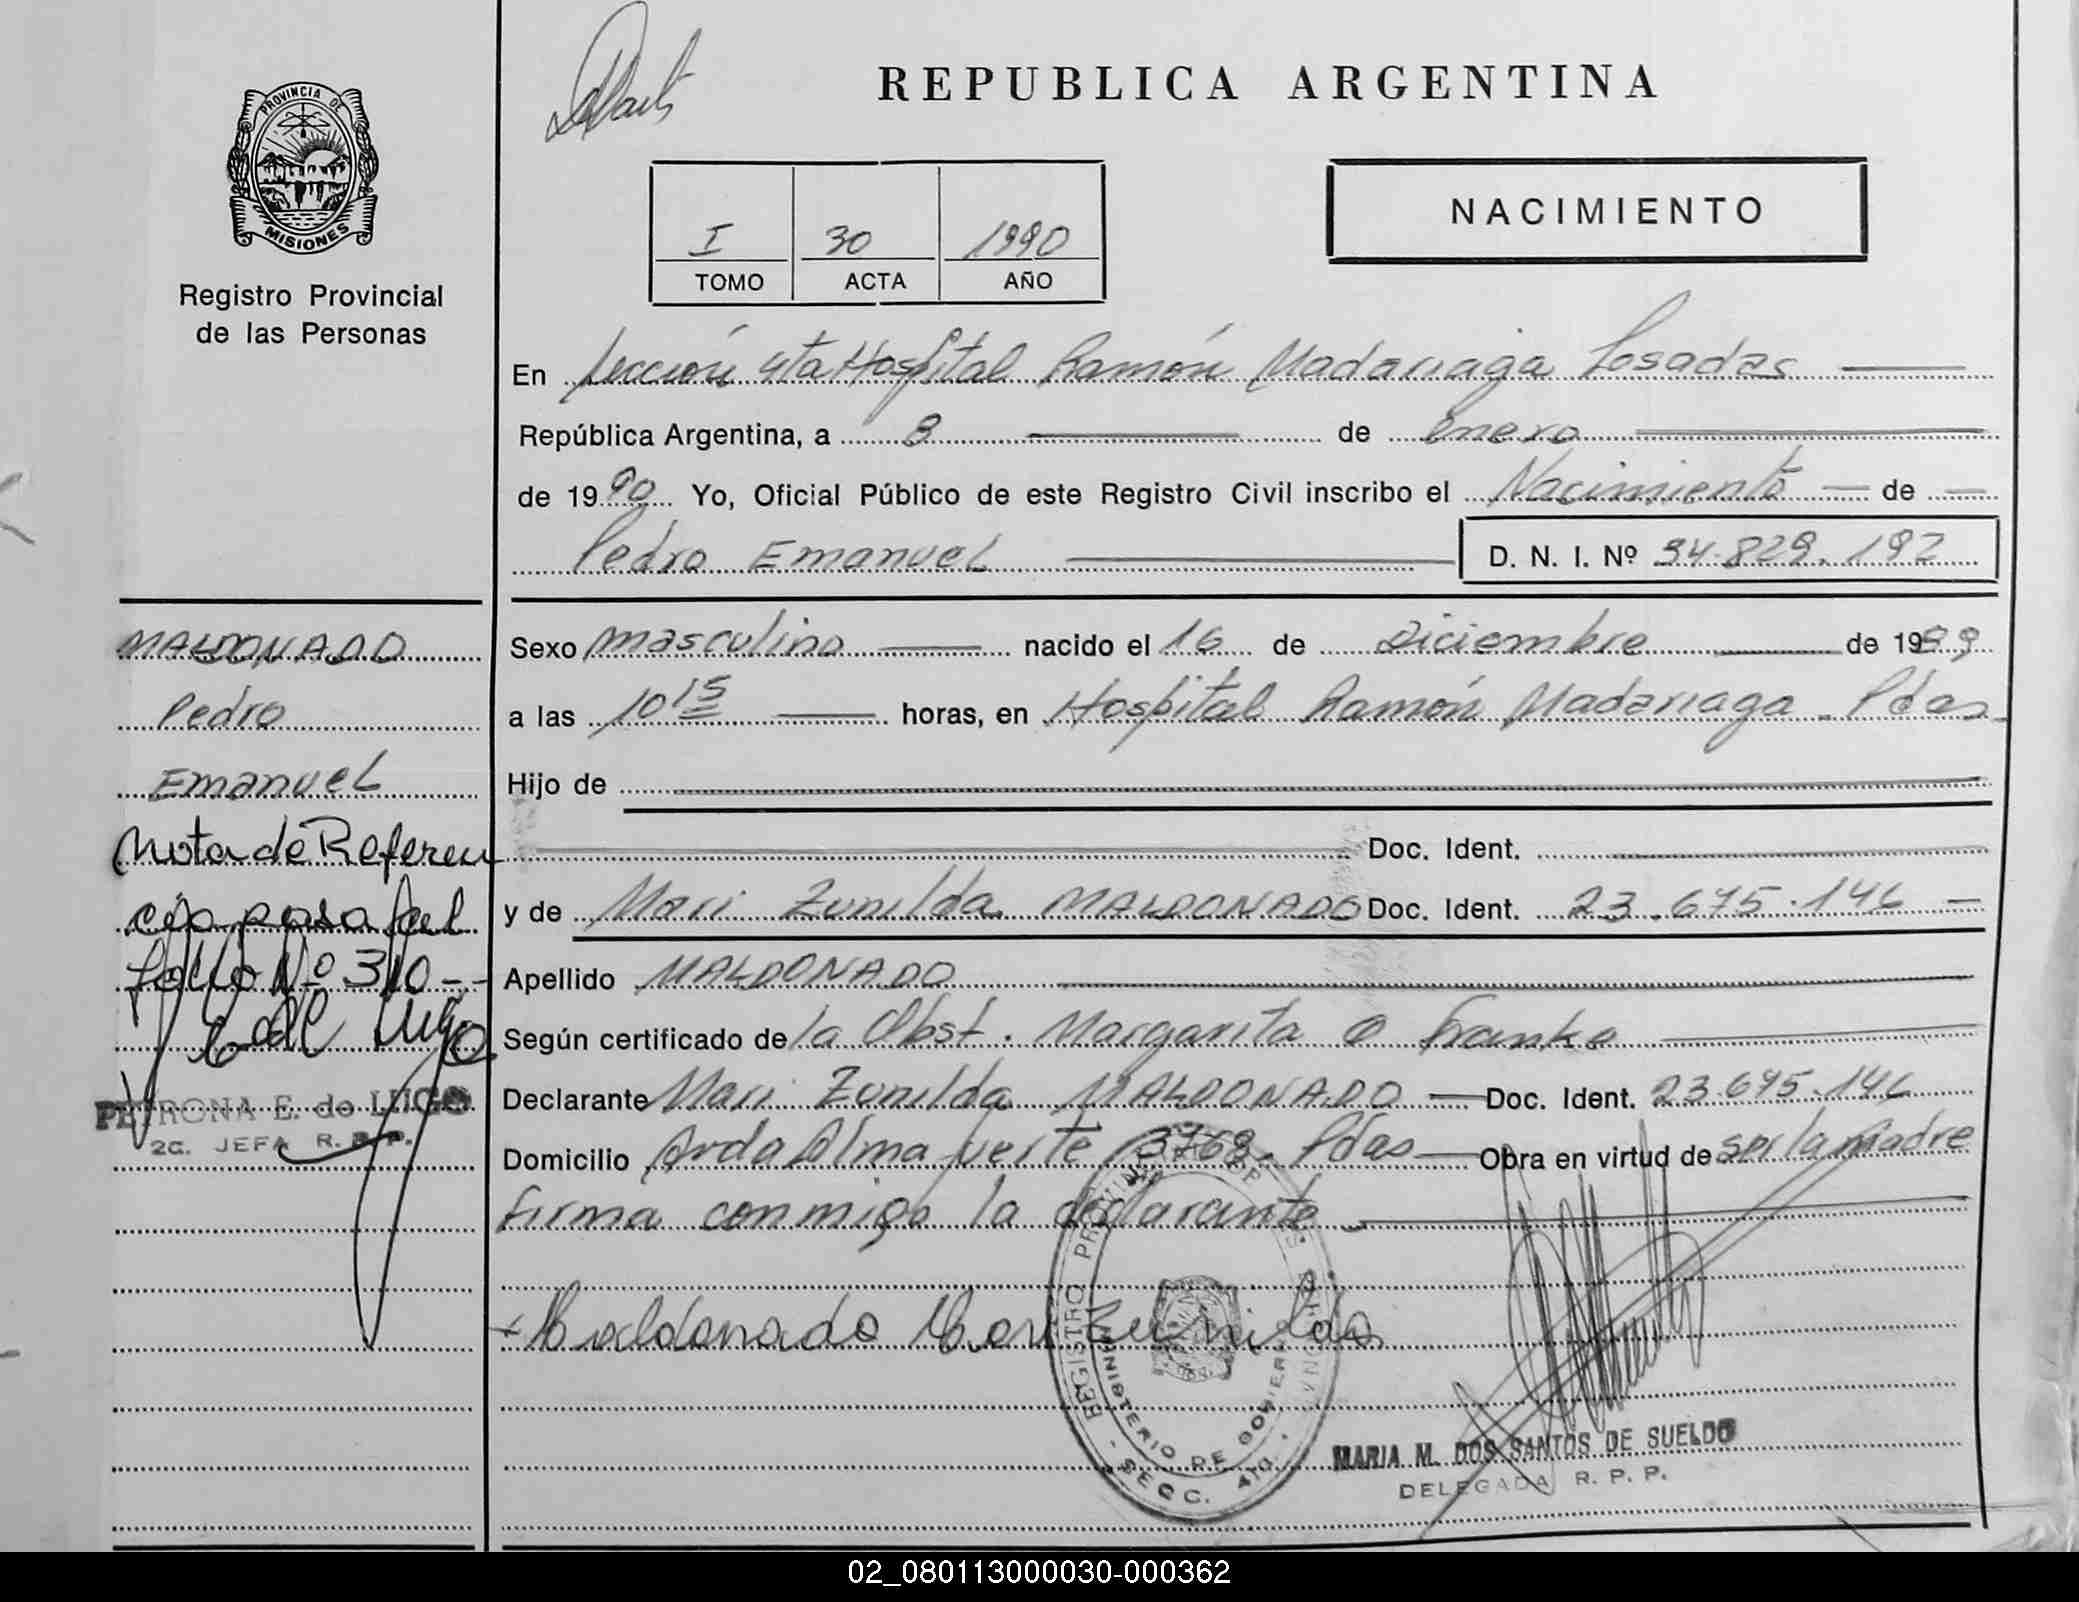 REPUBLICA ARGENTINA
PROVINCIA DE
MISIONES
Registro Provincial
de las Personas
I 30 1990
TOMO ACTA AÑO
NACIMIENTO
En Sección 4ta Hospital Ramón Madariaga Posadas
República Argentina, a 8 de enero
de 1990 Yo, Oficial Público de este Registro Civil inscribo el Nacimiento de
Pedro Emanuel D. N. I. Nº 34.829.192
MALDONADO
Pedro
Emanuel
Nota de Referen
cia pasa al
folio Nº 310--
PETRONA E. de LUGO
2G. JEFA R. P. P.
Sexo masculino nacido el 16 de Diciembre de 1989
a las 10 15 horas, en Hospital Ramón Madariaga - Pdas
Hijo de
Doc. Ident.
y de Mari Zunilda MALDONADO Doc. Ident. 23.675.146
Apellido MALDONADO
Según certificado de la Obst. Margarita O Franke
Declarante Mari Zunilda MALDONADO Doc. Ident. 23.675.146
Domicilio Avda Alma fuerte 3768. Pdas Obra en virtud de ser la madre
firma conmigo la declarante
Maldonado Mari Zunilda
REGISTRO PROVINCIAL
MINISTERIO DE GOBIERNO
SECC. 4TA.
MARIA M. DOS SANTOS DE SUELDO
DELEGADA R. P. P.
02_080113000030-000362